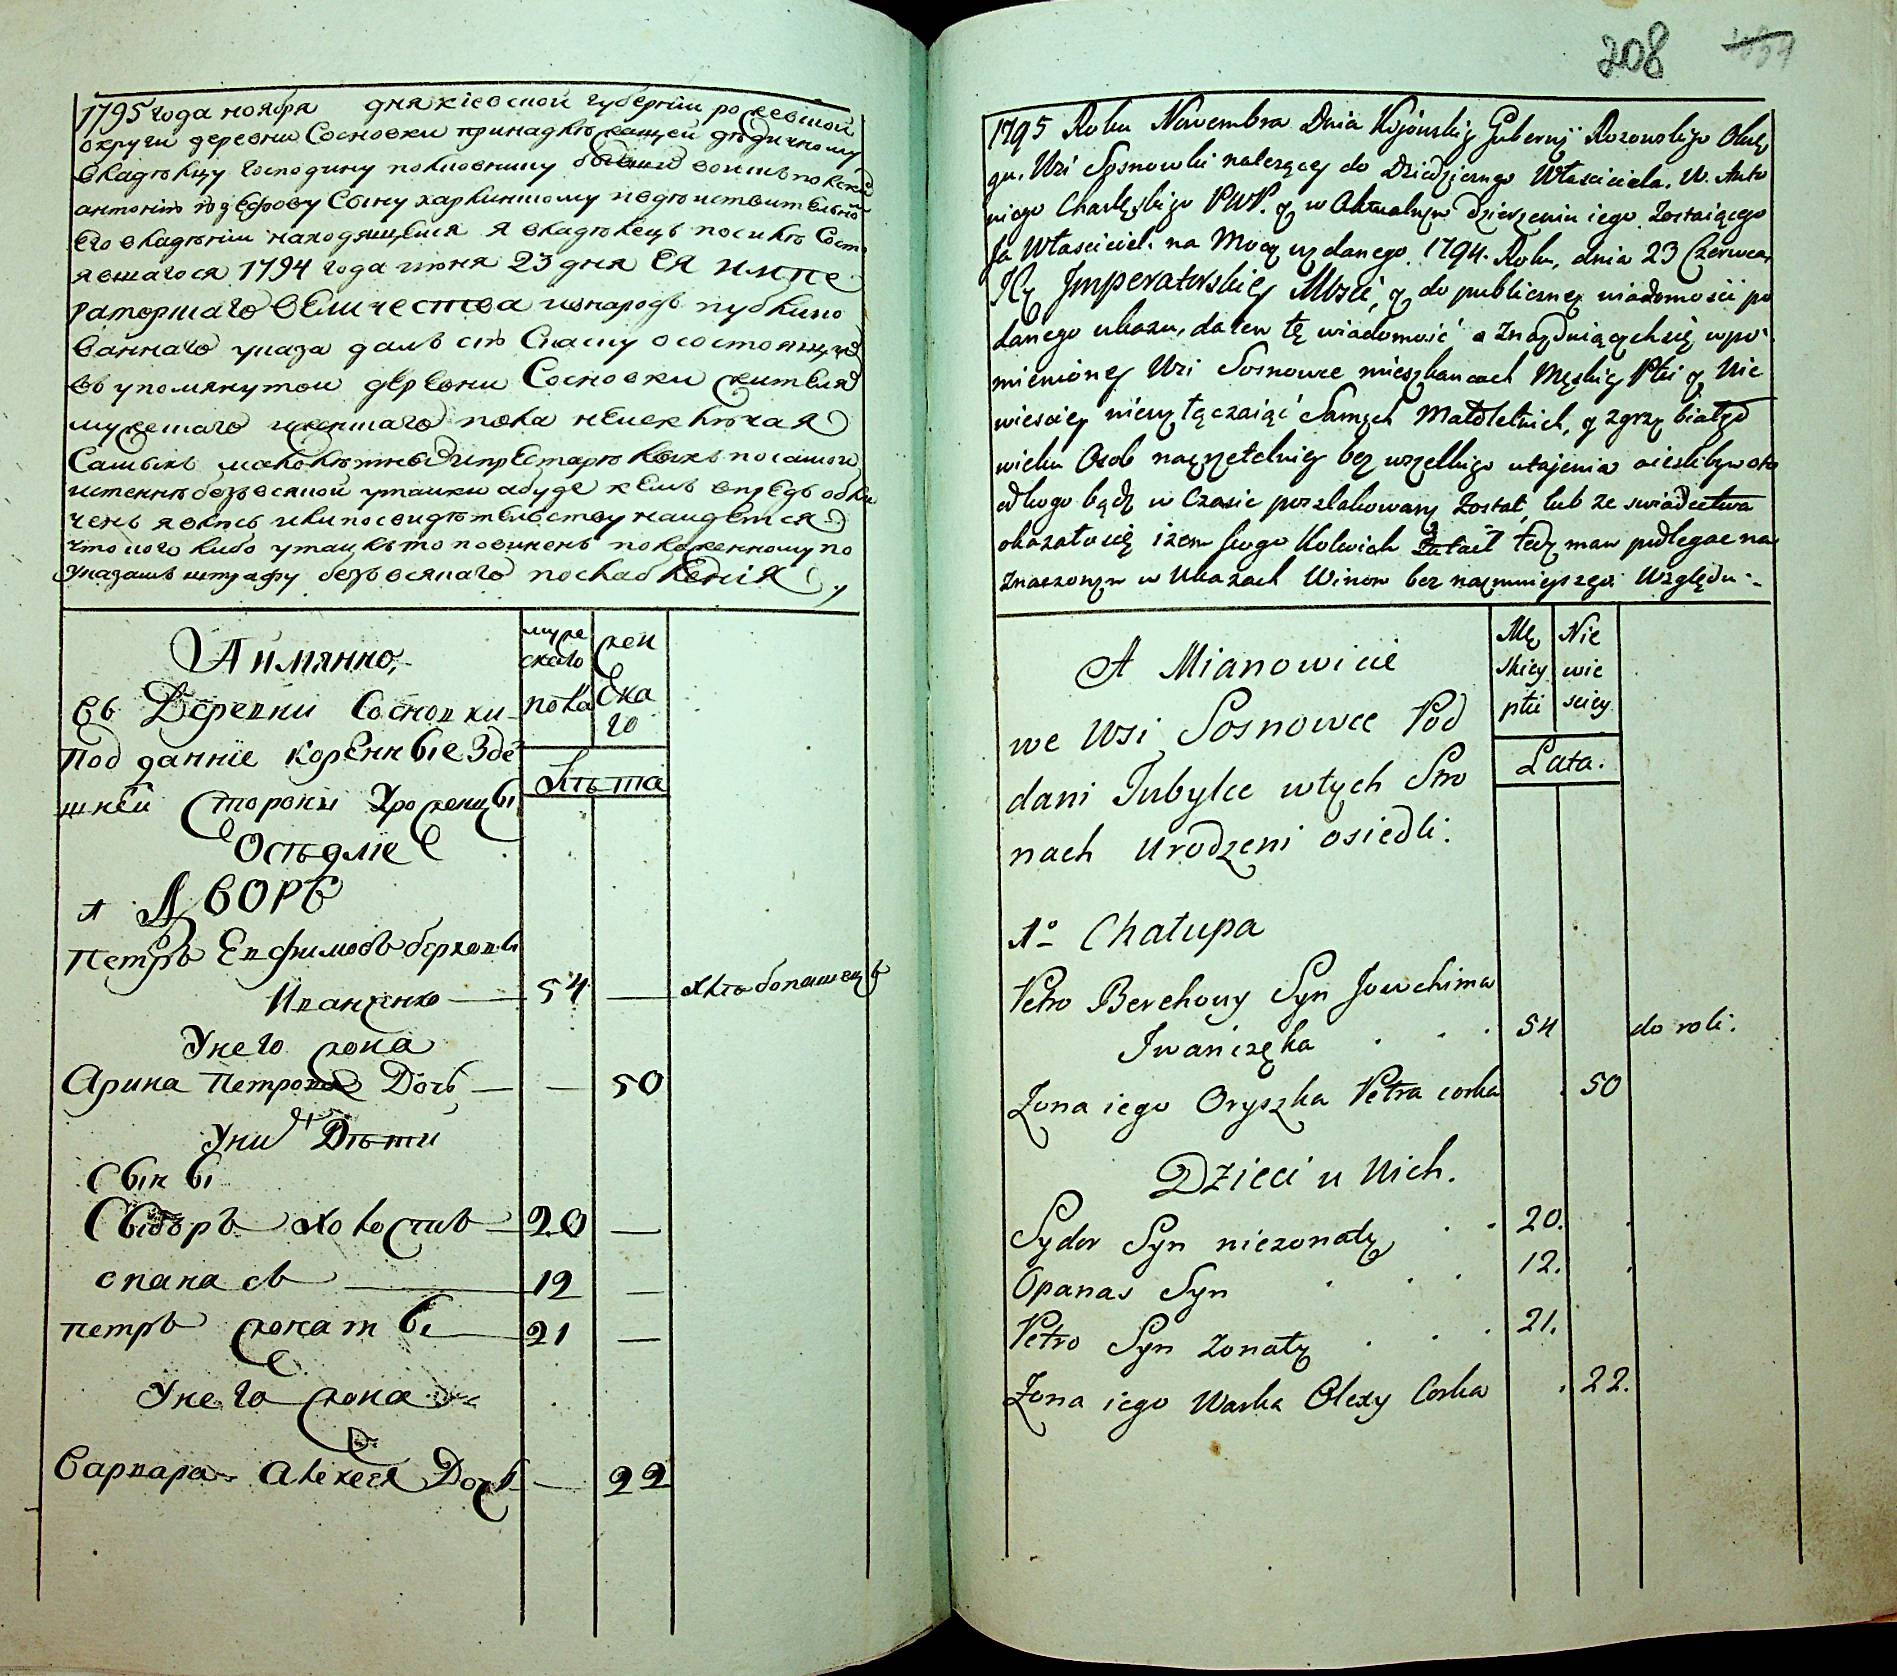 1795 года ноября дня киевской губернии рожевской
округи деревни Сосновки принадлежащей дѣдичному
владѣлцу господину полковнику бывшей войскъ полских
антонію юзефову Сыну харлинскому и въ дѣиствителномъ
его владѣнии находящейся я владѣлецъ по силѣ Состо
явшагося 1794 года июня 23 дня ЕЯ ИМПЕ
раторскаго ВЕЛИЧЕСТВА и в народъ публико
ваннаго указа далъ сію Скаску о состоящихъ
въ упомянутой деревни Сосновки жителяхъ
мужескаго и женскаго пола не исключая
Самыхъ малолѣтныхъ и престарѣлыхъ по самой
истеннѣ безъ всякой утайки а буде кемъ впредь обли
ченъ явлюсь или по свидѣтельству найдется
что кого либо утаилъ то повиненъ положенному по
Указамъ штрафу безъ всякаго послабленія
А имянно,
муже
ского
пола
жен
ска
го
въ Деревни Сосновки
Подданніе коренныезде
шней Стороны Урожени
Осѣдліе
Лѣта
1 ДВОРЪ
Петръ Евфимовъ берховы
Иванченко 54 — хлѣбопашецъ
У него жона
Арина Петрова Дочь — — 50
У них Дѣти
Сыны
Сыдоръ холостив 20 —
спанасъ 12 —
петръ жонаты 21 —
У него жона
Варвара Алексея Дочь — 22
208
1795 Roku Novembra Dnia Kijowskiey Gubernij Rozowskiego Okrę
gu, Wsi Sosnowki nalezącey do Dziedzicznego Właściciela. W. Anto
niego Charlęskiego PWP. y w Aktualnym dzierżeniu iego Zostaiącego
Ja Właściciel. na Mocy wydanego 1794. Roku, dnia 23 Czerwca,
Jey Imperatorskiey Mści, y do publiczney wiadomości po
danego ukazu, dałem tę wiadomość o Znayduiącychsię wpo
mienioney Wsi Sosnowce mieszkancach Męskiey Płci y Nie
wiesciey niewyłączaiąć Samych Małoletnich, y zgrzybiałych
wieku Osob nayrzetelniey bez wszelkiego utajenia
odkogo bądź w Czasie poszlakowany Został, lub ze swiadectwa
okazałosię izem kogo Kolwiek Zataił tedy mam podlegac na
znaczonym w Ukazach Winom bez naymnieyszego Względu.
A Mianowicie
Mę
skiey
płci
Nie
wie
sciey
we Wsi Sosnowce Pod
dani Tubylce wtych Stro
nach Urodzeni osiedli.
Lata.
1o Chałupa
Petro Berehowy Syn Jowchima
Iwaniczęka . . . 54 do roli.
Zona iego Oryszka Petra corka . 50
Dzieci u Nich.
Sydor Syn niezonaty . . 20. .
Opanas Syn . . . 12. .
Petro Syn Zonaty . . . 21.
Zona iego Warka Olexy Corka . 22.